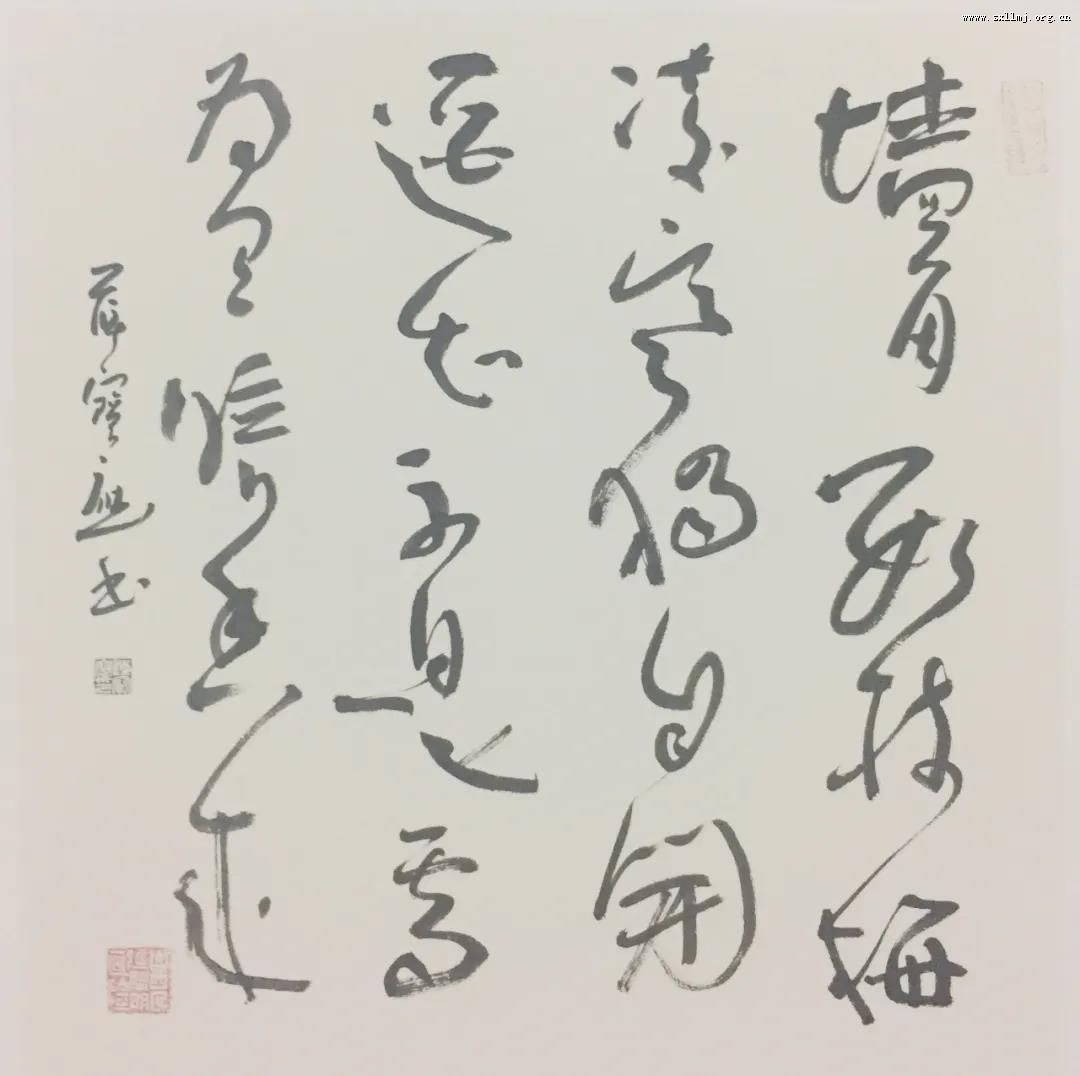 www.sxllmj.org.cn
墙角數枝梅
凌寒獨自開
遥知不是雪
為有暗香来
薛寶書